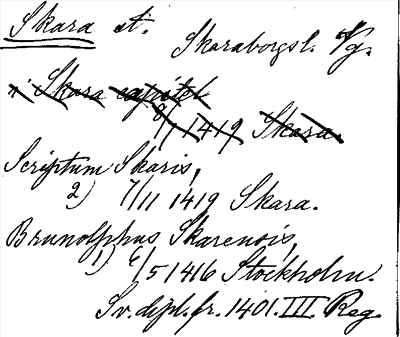 Skara st. Skaraborgsl. Vg.
i Skara capitel
9/11 1419 Skara.
Scriptum Skaris,
2) 7/11 1419 Skara.
Brunolphus Skarensis,
1) 6/5 1416 Stockholm.
Sv. dipl. fr. 1401. III Reg.